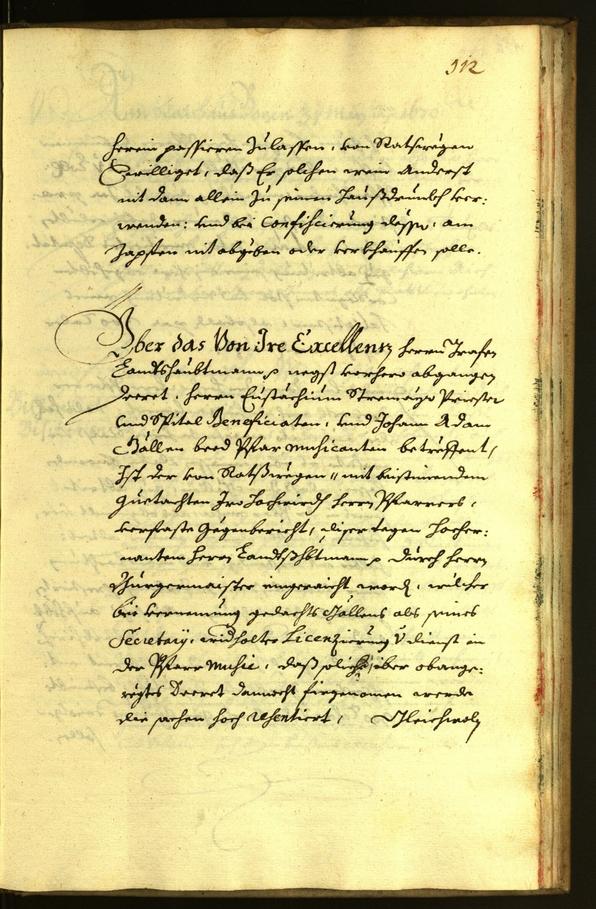 312
herein passieren Zulassen, von Ratswegen
Bewilliget, daß Er solchen wein Anderst
nit dann allein Zu seinem Haußdrunckh ver:
wenden: und bei Confiscierung dessen, am
Zapffen nit abgeben oder verkhauffen solle.
Über das Von Ire Excellenz herrn Grafen
Landtshaubtmann negst vorhero abgangen
Decret, herrn Eustachium Priester
und Spital Beneficiaten, und Johann Adam
Gällen beed Pfar Musicanten betreffent,
Ist der von Ratßwegen mit beistimendem
Guetachten Iro Hochwürd herrn Pfarrers,
verfaste Gegenbericht, diser tegen Hocher:
nantem herrn Landtshbtmann durch herrn
Burgermaister eingeraicht word, welcher
bei vernemung gedachts Gällens als seines
Secretarij, widholter Licenzierung dienst in
der Pfarr Music, daß solche über obange:
regtes Decret dannocht firgenomen werde
die sachen hoch resentiert, Gleichwoln